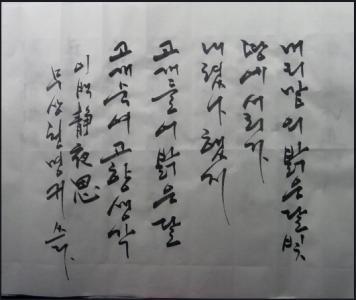 머리맡의 밝은달빛
땅에 서리가
내렸나 했지
고개들어 밝은달
고개숙여 고향생각
이백 靜夜思
무상